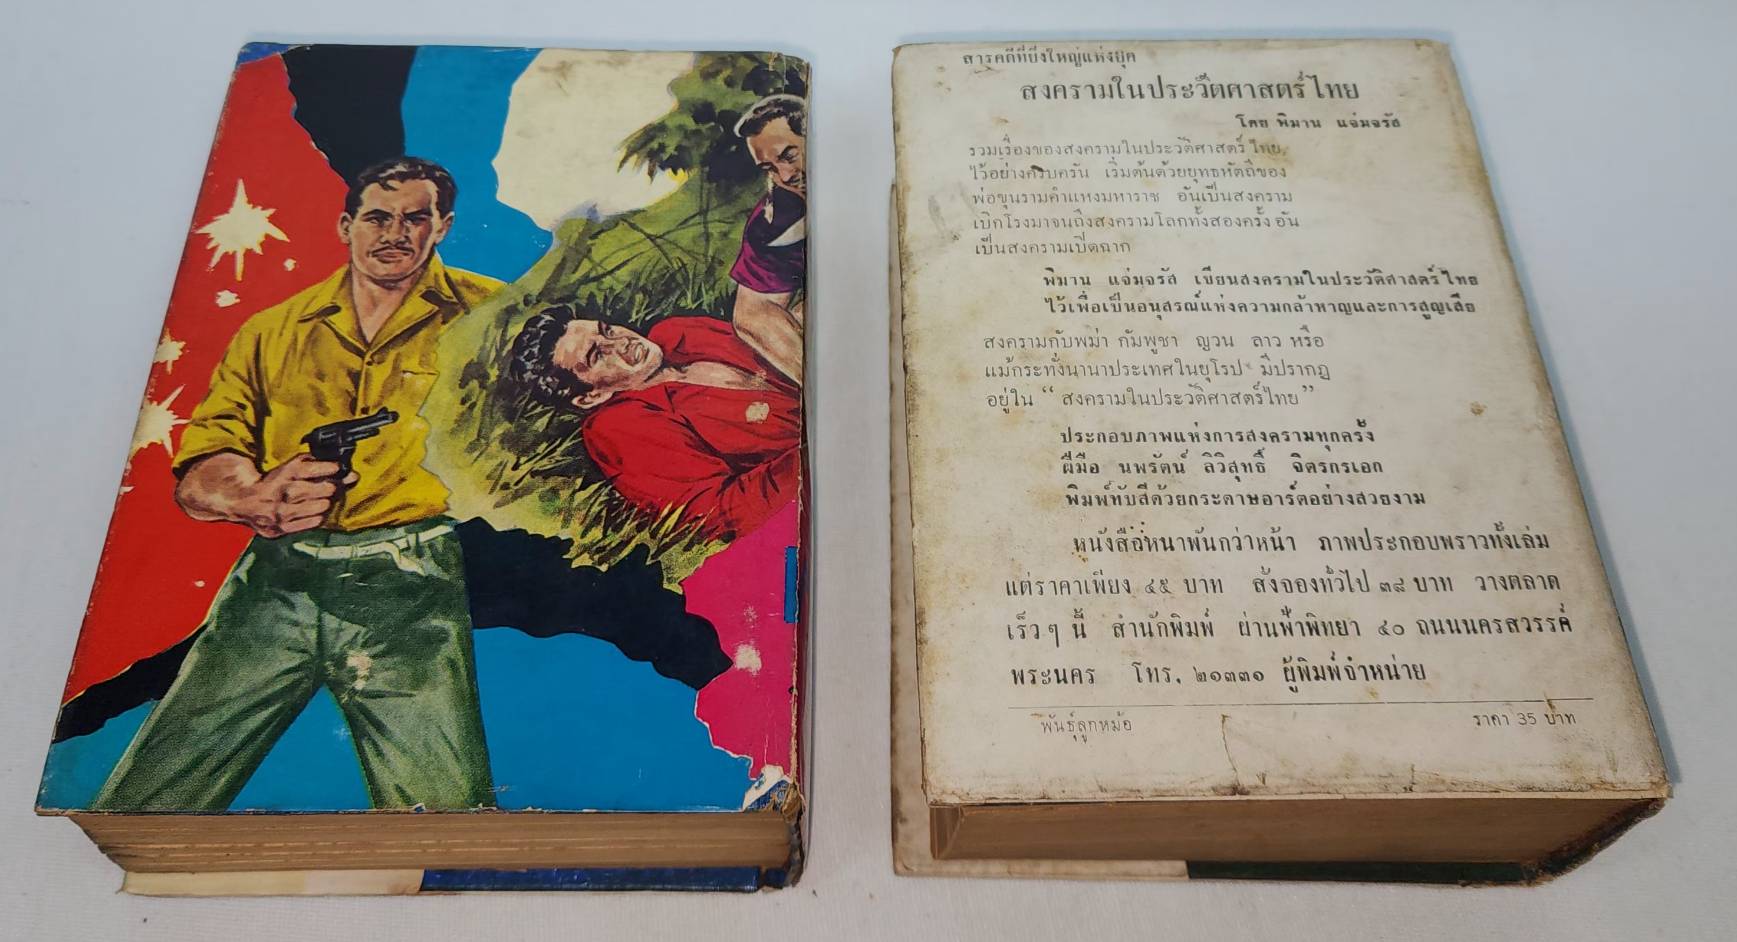 สารคดีที่ยิ่งใหญ่แห่งยุค
สงครามในประวัติศาสตร์ไทย
โดย พิมาน แจ่มจรัส
รวมเรื่องของสงครามในประวัติศาสตร์ไทย
ไว้อย่างครบครัน เริ่มต้นด้วยยุทธหัตถีของ
พ่อขุนรามคำแหงมหาราช อันเป็นสงคราม
เบิกโรงมาจนถึงสงครามโลกทั้งสองครั้ง อัน
เป็นสงครามเปิดฉาก
พิมาน แจ่มจรัส เขียนสงครามในประวัติศาสตร์ไทย
ไว้เพื่อเป็นอนุสรณ์แห่งความกล้าหาญและการสูญเสีย
สงครามกับพม่า กัมพูชา ญวน ลาว หรือ
แม้กระทั่งนานาประเทศในยุโรป มีปรากฏ
อยู่ใน “ สงครามในประวัติศาสตร์ไทย”
ประกอบภาพแห่งการสงครามทุกครั้ง
ฝีมือ นพรัตน์ ลิวิสุทธิ์ จิตรกรเอก
พิมพ์ทับสีด้วยกระดาษอาร์ตอย่างสวยงาม
หนังสือหนาพันกว่าหน้า ภาพประกอบพราวทั้งเล่ม
แต่ราคาเพียง ๔๕ บาท สั่งจองทั่วไป ๓๘ บาท วางตลาด
เร็วๆ นี้ สำนักพิมพ์ ผ่านฟ้าพิทยา ๔๐ ถนนนครสวรรค์
พระนคร โทร. ๒๑๓๓๑ ผู้พิมพ์จำหน่าย
พันธุ์ลูกหม้อ ราคา 35 บาท